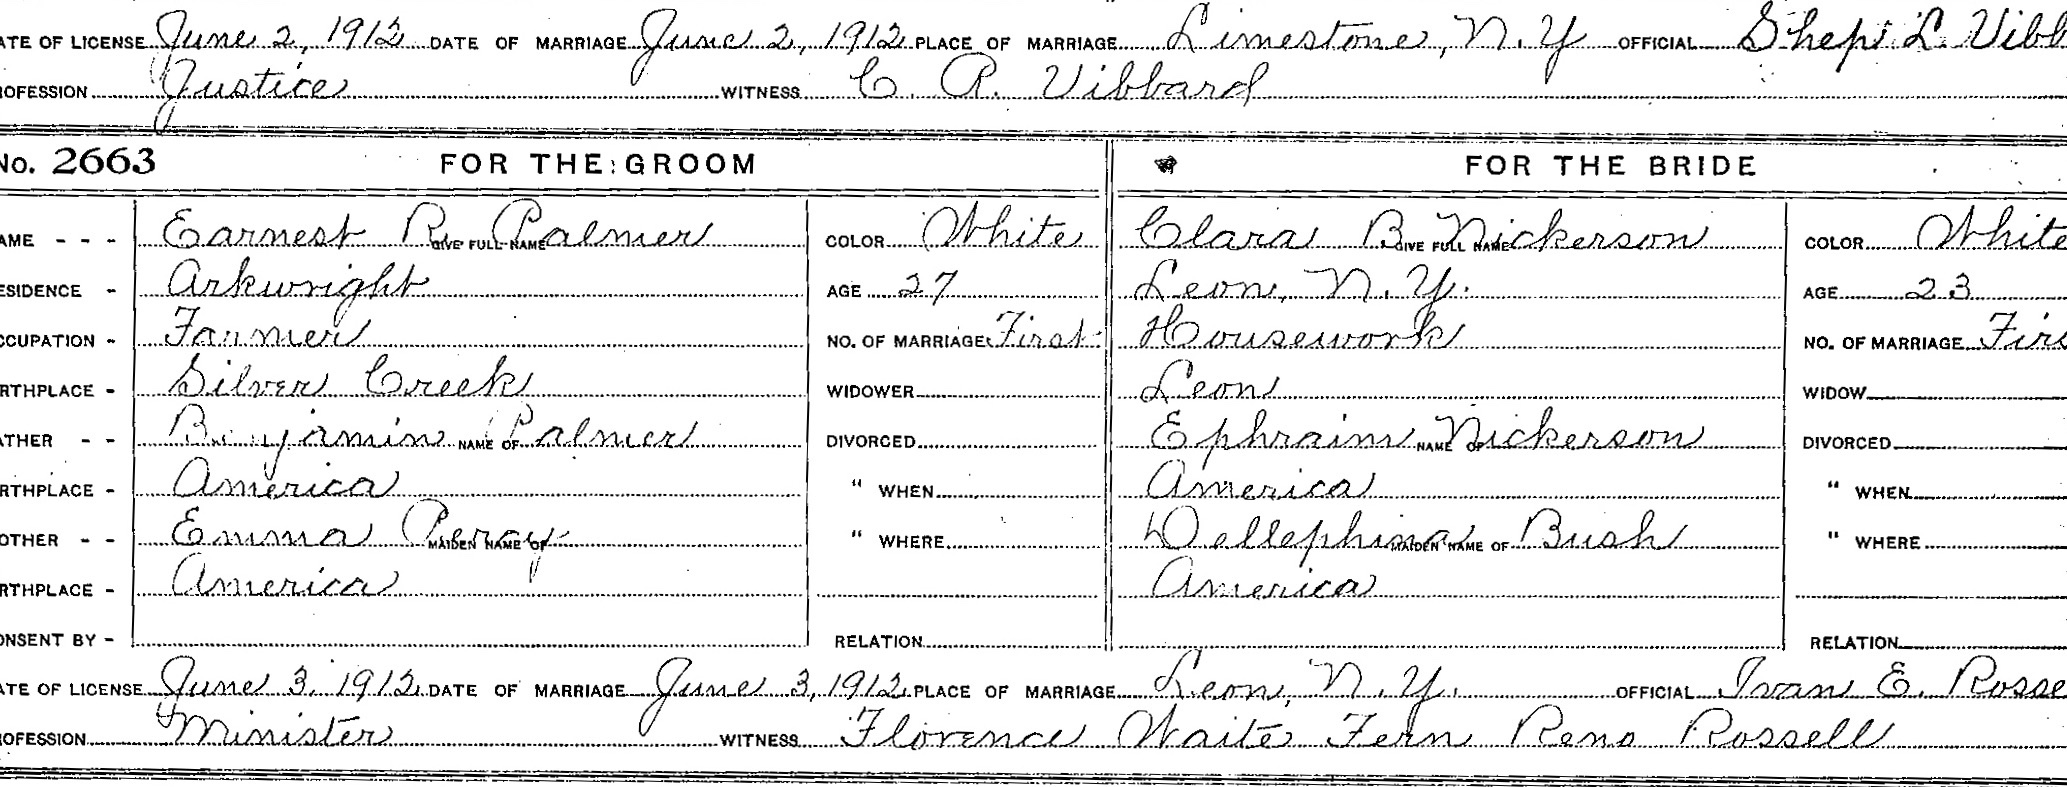 ATE OF LICENSE June 2, 1912 DATE OF MARRIAGE June 2, 1912 PLACE OF MARRIAGE Limestone, N.Y OFFICIAL Shep L. Vibb
ROFESSION Justice WITNESS C. A. Vibbard
No. 2663 FOR THE GROOM FOR THE BRIDE
AME - - - Earnest R. Palmer GIVE FULL NAME COLOR White Clara B. Nickerson GIVE FULL NAME COLOR White
ESIDENCE - Arkwright AGE 27 Leon, N.Y. AGE 23
CCUPATION - Farmer NO. OF MARRIAGE First Housework NO. OF MARRIAGE Firs
RTHPLACE - Silver Creek WIDOWER Leon WIDOW
ATHER - - Benjamin Palmer NAME OF DIVORCED Ephraim Nickerson NAME OF DIVORCED
RTHPLACE - America " WHEN America " WHEN
OTHER - - Emma MAIDEN NAME OF " WHERE Dellephina Bush MAIDEN NAME OF " WHERE
RTHPLACE - America America
ONSENT BY - RELATION RELATION
ATE OF LICENSE June 3, 1912 DATE OF MARRIAGE June 3, 1912 PLACE OF MARRIAGE Leon, N.Y. OFFICIAL Ivan E. Rosse
ROFESSION Minister WITNESS Florence Waite Fern Reno Rossell